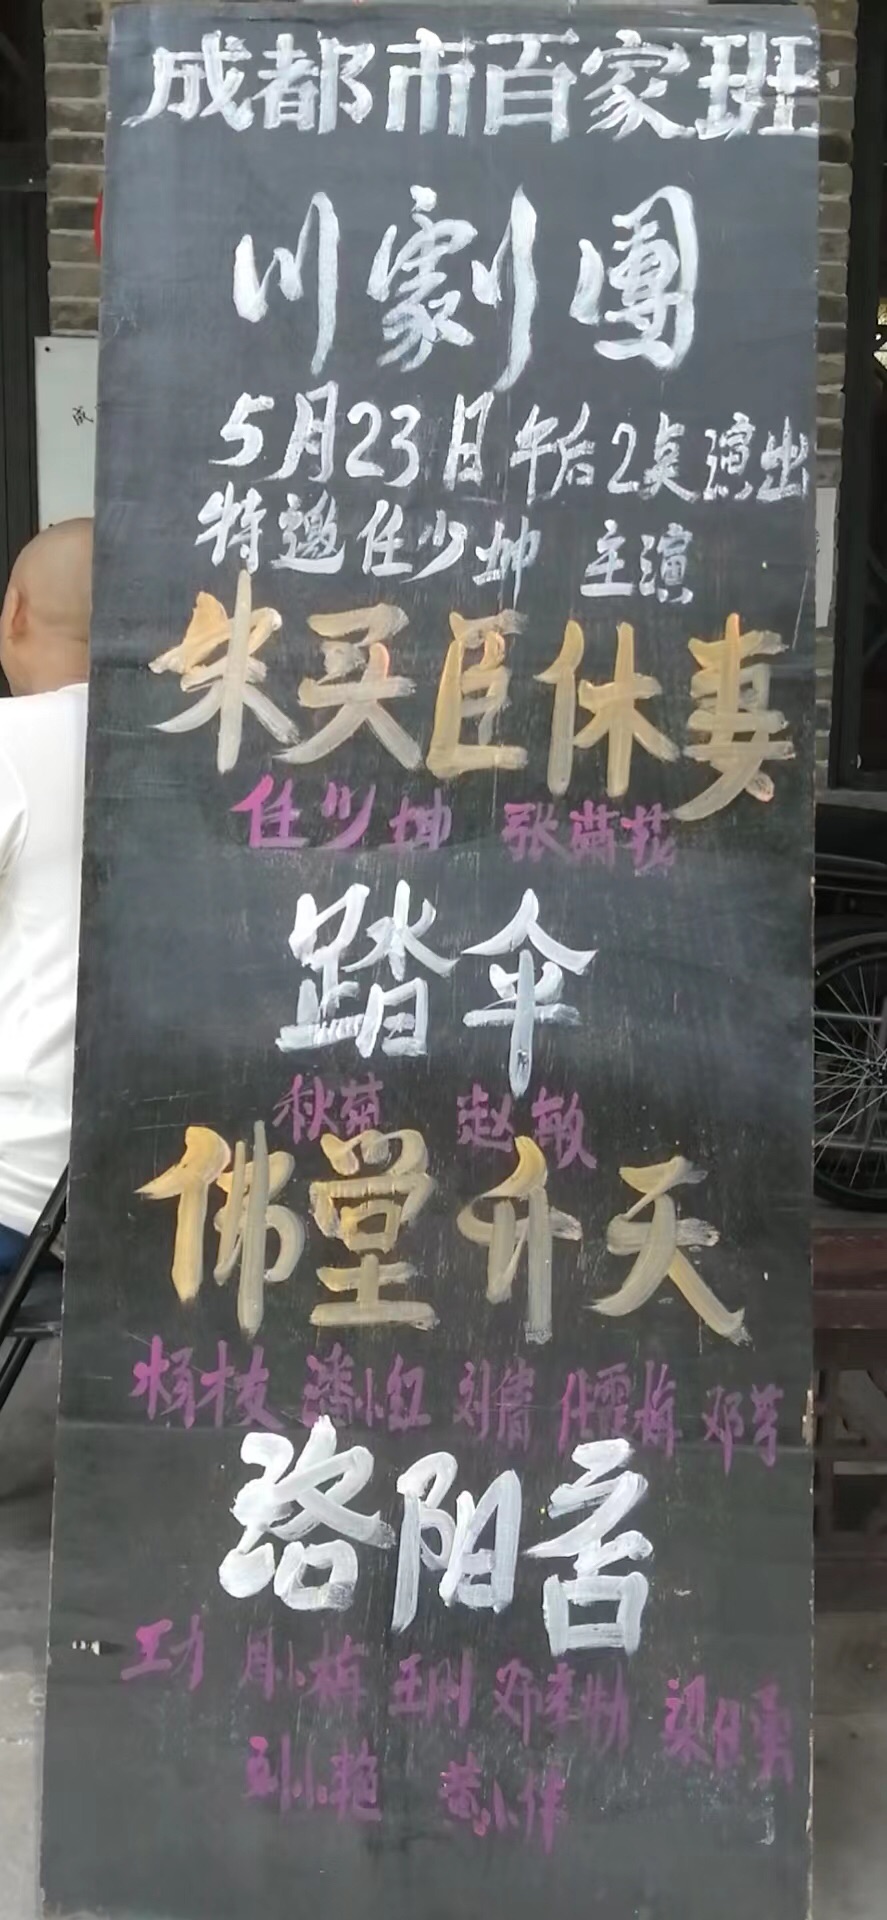 成都市百家班
川劇團
5月23日午后2点演出
特邀任少坤 主演
朱买臣休妻
任少坤 张燕茹
踏伞
秋菊 赵敏
佛堂升天
杨才友 潘小红 刘睿 任雪梅 邓芳
洛阳吉
王力 周小梅 王刚
刘小艳 黄小伴